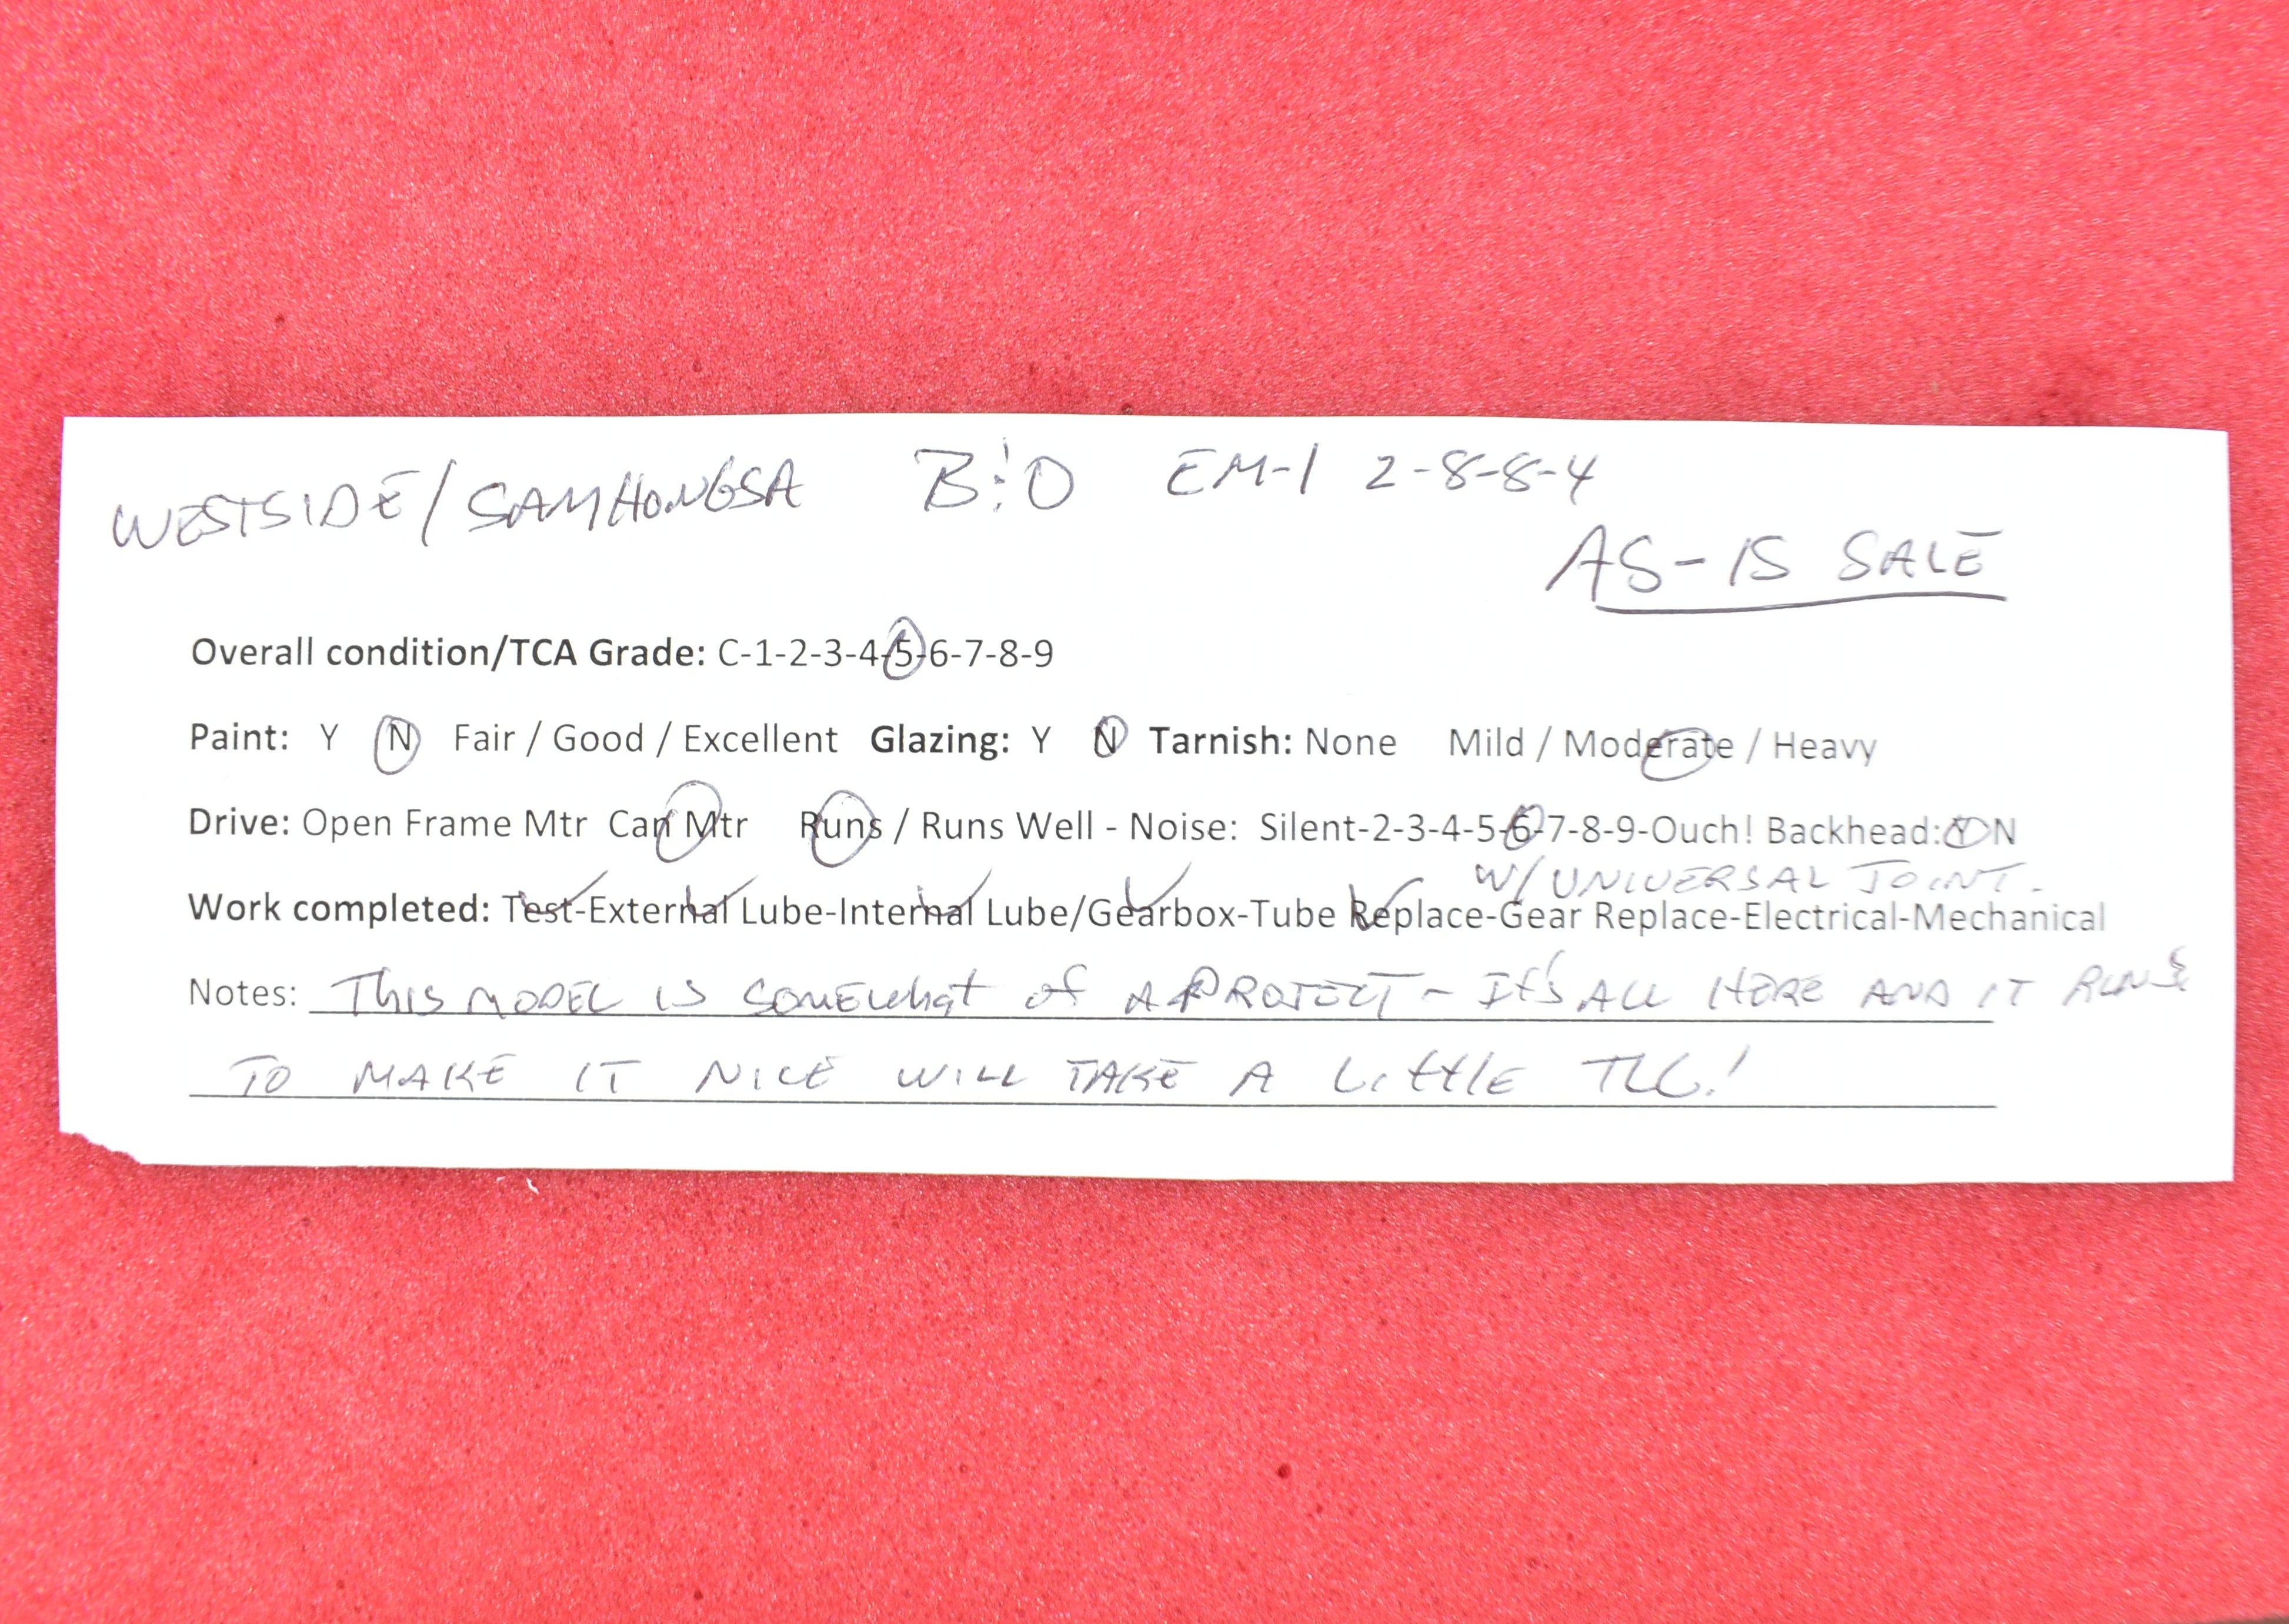 WESTSIDE/SAMHONGSA B&O EM-1 2-8-8-4
AS-IS SALE
Overall condition/TCA Grade: C-1-2-3-4-5-6-7-8-9
Paint: Y N Fair / Good / Excellent Glazing: Y N Tarnish: None Mild / Moderate / Heavy
Drive: Open Frame Mtr Can Mtr Runs / Runs Well - Noise: Silent-2-3-4-5-6-7-8-9-Ouch! Backhead: Y N
W/ UNIVERSAL JOINT.
Work completed: Test-External Lube-Internal Lube/Gearbox-Tube Replace-Gear Replace-Electrical-Mechanical
Notes: THIS MODEL IS SOMEWHAT OF A PROJECT - IT'S ALL HERE AND IT RUNS
TO MAKE IT NICE WILL TAKE A LITTLE TLC!